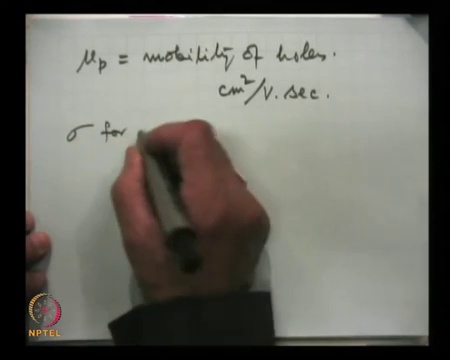 μp = mobility of holes.
cm²/V.sec.
σ for
NPTEL